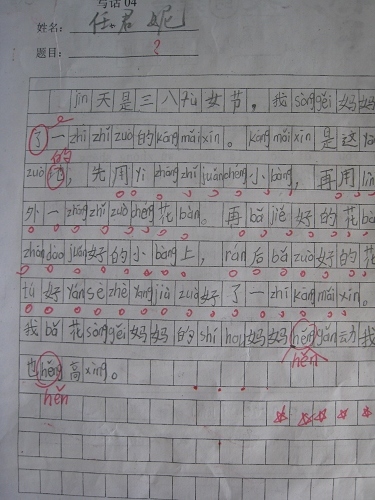 写话04
姓名：任君妮
题目：?
jīn天是三八fù女节，我sònggěi妈妈
了一zhīzhǐzuò的kāngmǎixīn。kāngmǎixīn是这
的
zuò的，先用yìzhāngzhǐjuǎnchéng小bàng，再用lìn
外一zhāngzhǐzuòchéng花bàn。再bǎjiǎn好的花bàn
zhāndàojuǎn好的小bàng上，rán后bǎzuò好的花
tú好yánsè zhèyàngjiùzuò好了一zhīkāngmǎixīn。
我bǎ花sònggěi妈妈的shíhou妈妈hěngǎn动我
hěn
也hěng高xìng。
hěn